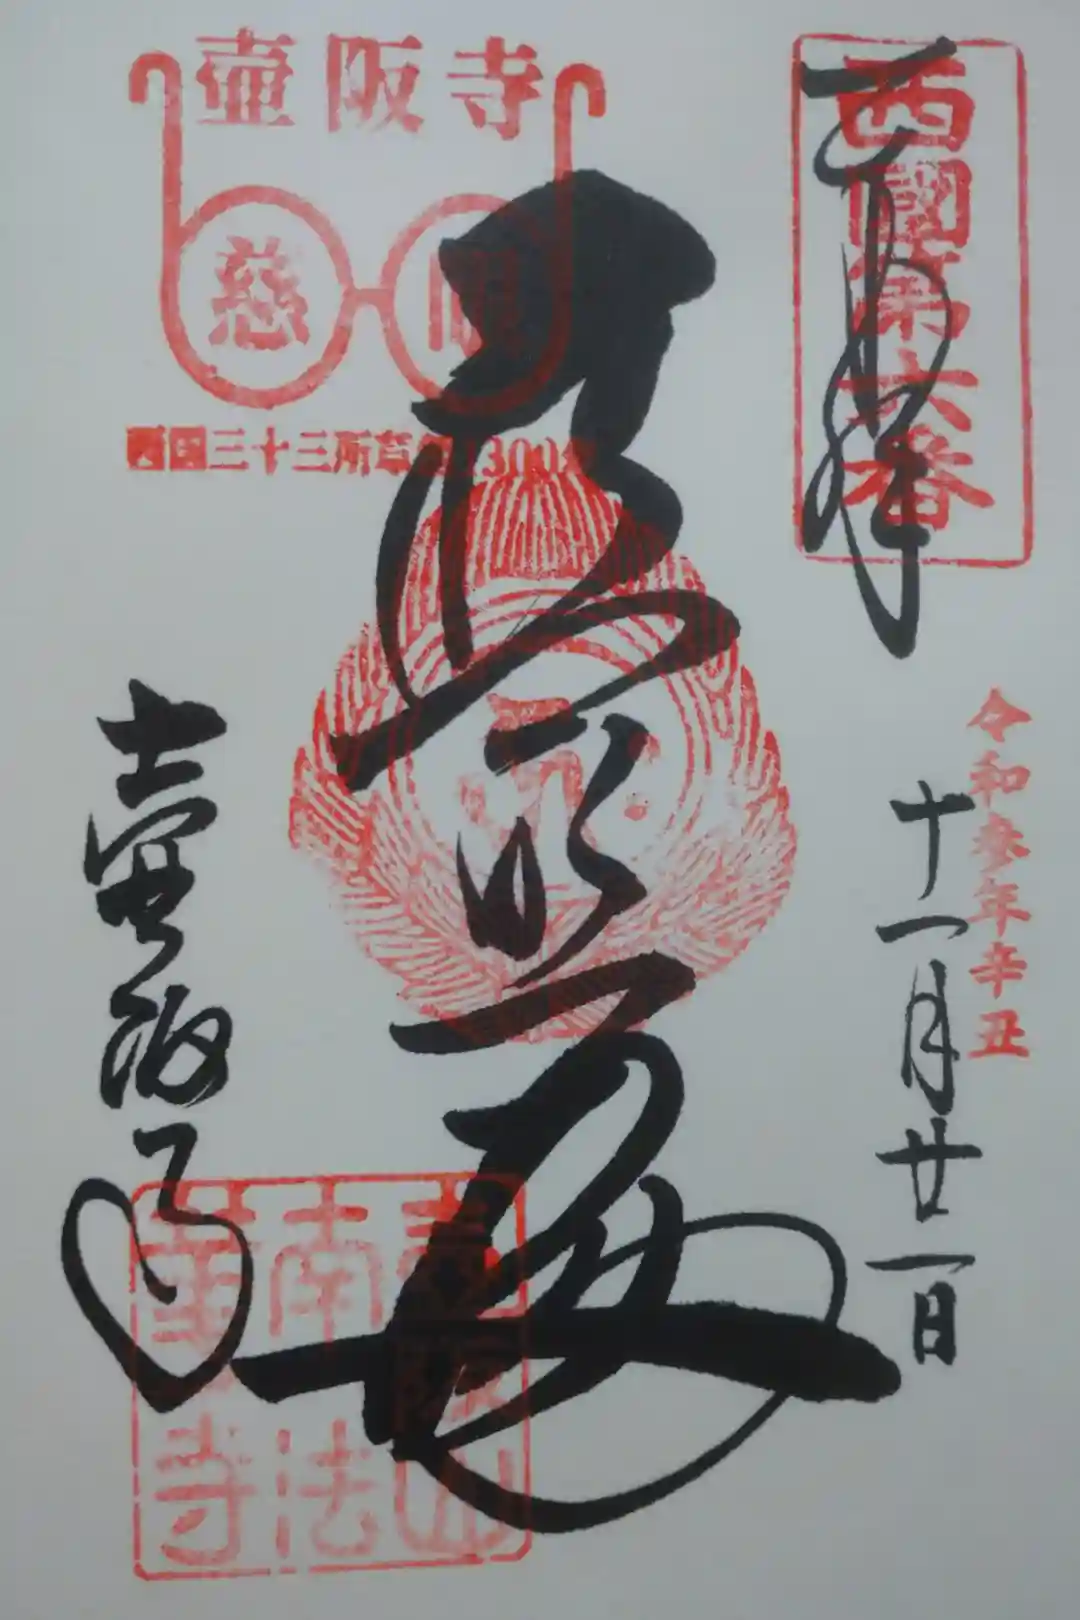 西國第六番
奉拝
令和参年辛丑
十一月廿一日
普照殿
壷阪寺
慈眼
西国三十三所草創1300年
壷阪寺
壷阪山
南法
華寺